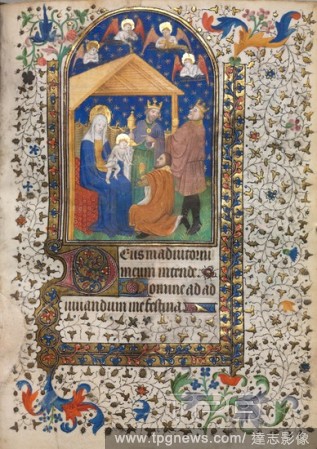 Deus in adiutoriu
meum intende.
Domine ad ad
iuuandum me festina
www.tpgnews.com/ 達志影像